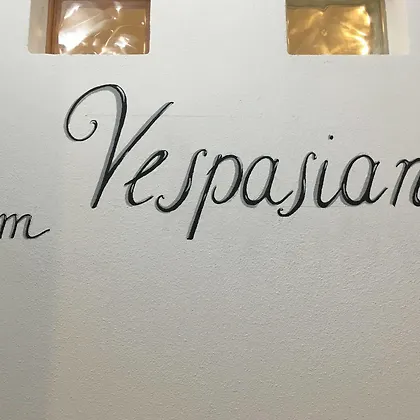 Vespasian
m